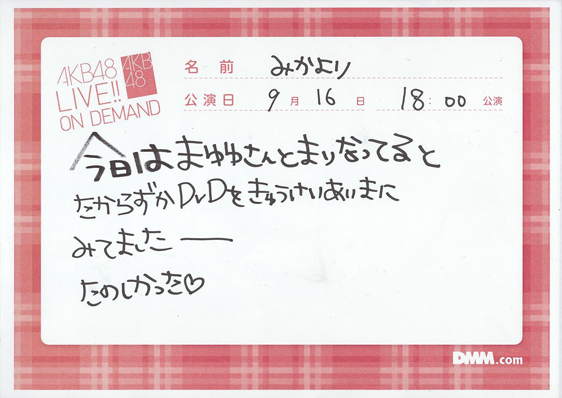 AKB48
LIVE!!
ON DEMAND
AKB
48
名前 みかより
公演日 9月16日 18:00公演
今日はまゆゆさんとまりなってると
たからずかDVDをきゅうけいあいまに
みてました――
たのしかった♡
DMM.com